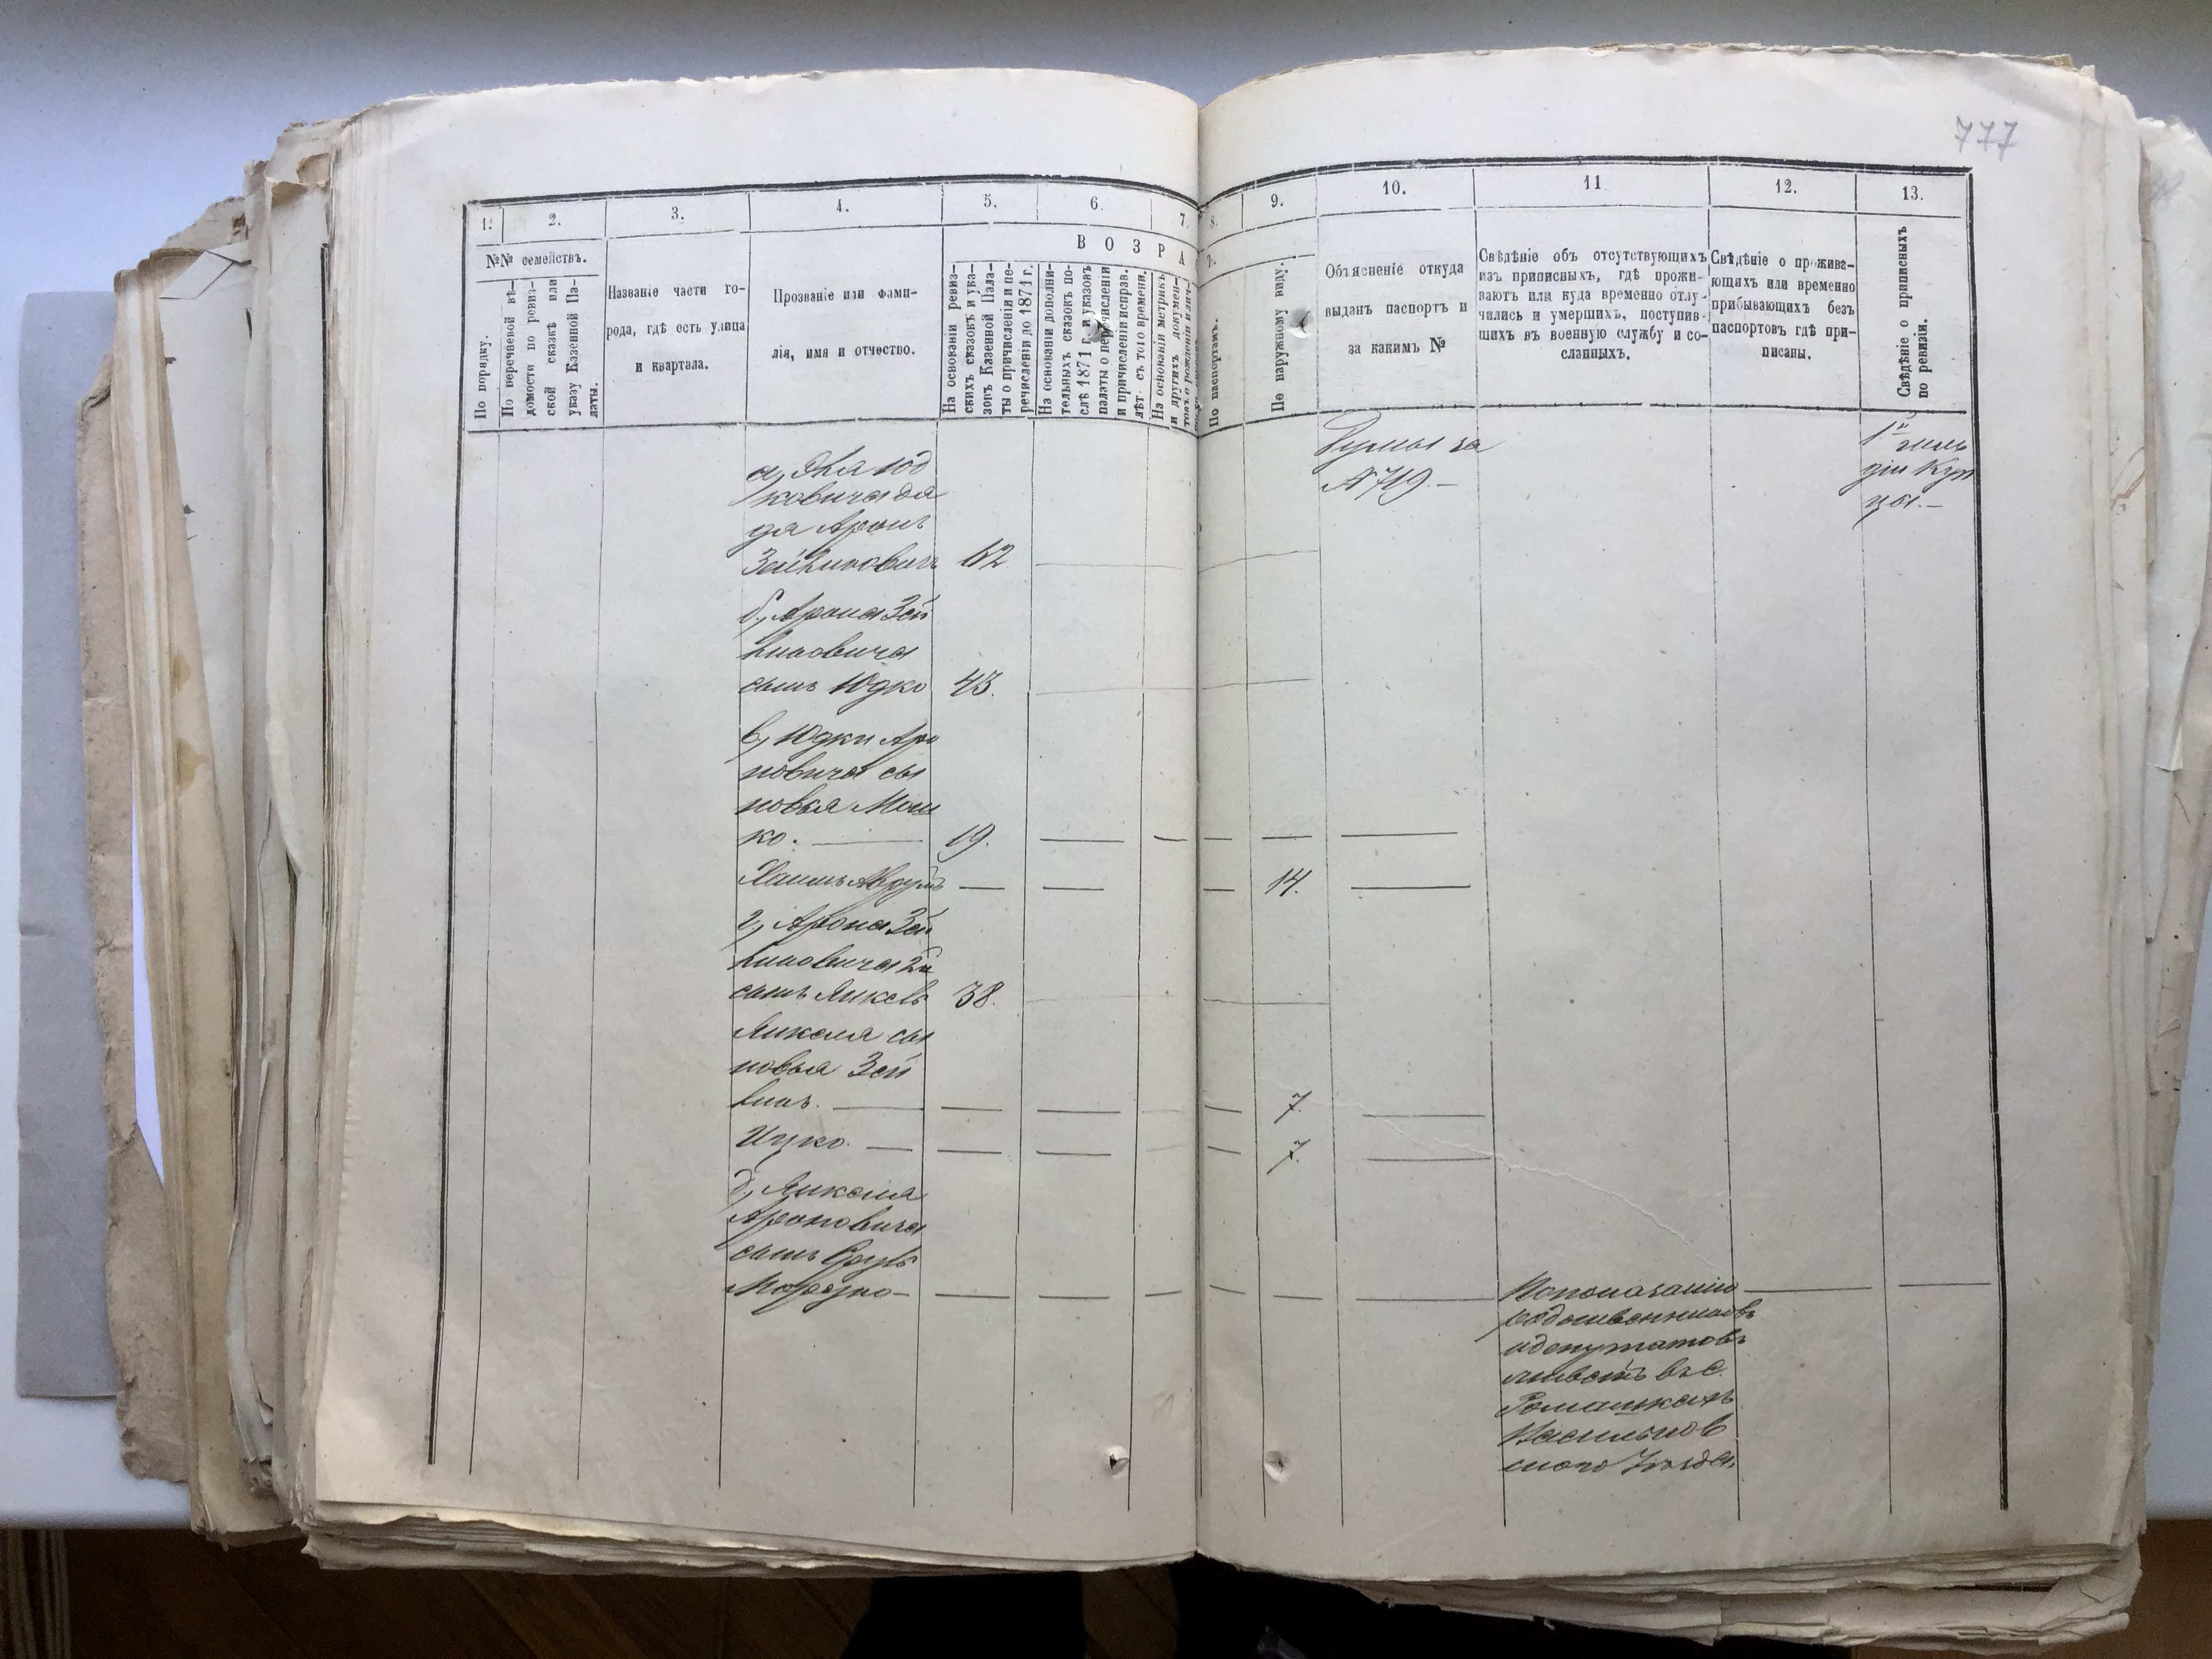 777
1.
2.
3.
4.
5.
6.
7.
8.
9.
10.
11
12.
13.
№№ семействъ.
ВОЗРА
По порядку.
По перечневой вѣ-
домости по ревиз-
ской сказкѣ или
указу Казенной Па-
латы.
Названіе части го-
рода, гдѣ есть улица
и квартала.
Прозваніе или фами-
лія, имя и отчество.
На основаніи ревиз-
скихъ сказокъ и ука-
зовъ Казенной Пала-
ты о причисленіи и пе-
речисленіи до 1871 г.
На основаніи дополни-
тельныхъ сказокъ по-
слѣ 1871 г. и указовъ
палаты о перечисленіи
и причисленіи исправ.
лѣт. съ того времени.
На основаніи метрикъ
и другихъ докумен-
товъ о рожденіи
По паспортамъ.
По наружному виду.
Объясненіе откуда
выданъ паспортъ и
за какимъ №
Свѣдѣніе объ отсутствующихъ
изъ приписныхъ, гдѣ прожи-
ваютъ или куда временно отлу-
чились и умершихъ, поступив-
шихъ въ военную службу и со-
сланныхъ.
Свѣдѣніе о прожива-
ющихъ или временно
прибывающихъ безъ
паспортовъ гдѣ при-
писаны.
Свѣдѣніе о приписныхъ
по ревизіи.
Думы за
№ 719.-
гиль
діи Куп
цы.-
а, Юд
ковича дя
дя Аронъ
Зейвиловичъ 62
б, Арона Зей
виловича
сынъ Юдко 43.
в, Юдки Аро
новича сы
новья Мош
ко. — 19.
Хаимъ 14.
г, Арона Зей
виловича 2й
сынъ Янкель 38.
Янкеля сы
новья Зей
вилъ. — 7.
Ицко. — 7.
д, Янкеля
Ароновича
сынъ Срулъ
Мордко —
По показанію
родственниковъ
и депутатовъ
живетъ въ с.
Ромашкахъ
Васильков
скаго Уѣзда.